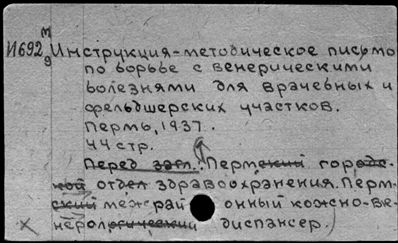 И692 м/9 Инструкция-методическое письмо
по борьбе с венерическими
болезнями для врачебных и
фельдшерских участков.
Пермь, 1937.
44 стр.
Перед загл.: Пермский городс-
кой отдел здравоохранения. Перм-
ский межрай онный кожно-ве-
нерологический диспансер.)